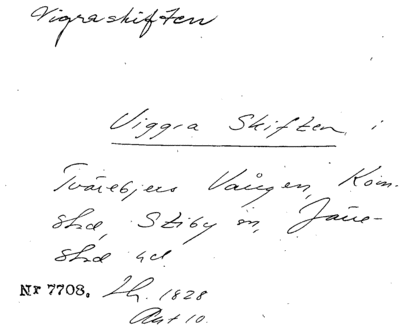 Vigraskiften
Viggra Skiften i
Tvärebjers Vången, Kom-
stad, Stiby sn, Järe-
stad hd
Nr 7708. Lh. 1828
Akt 10.